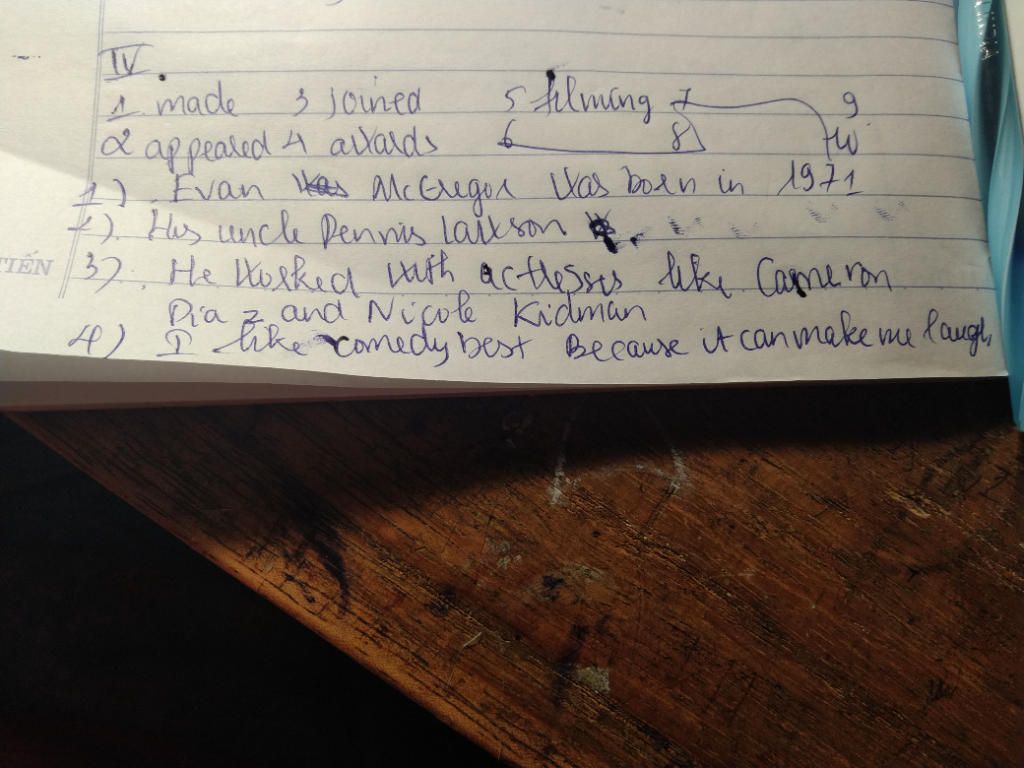 IV.
1 made 3 joined 5 filming 7 9
2 appeared 4 awards 6 8 10
1) Evan McGregor was born in 1971
2). His uncle Dennis Lawson
TIẾN
3). He worked with actresses like Cameron
Diaz and Nicole Kidman
4) I like comedy best Because it can make me laugh